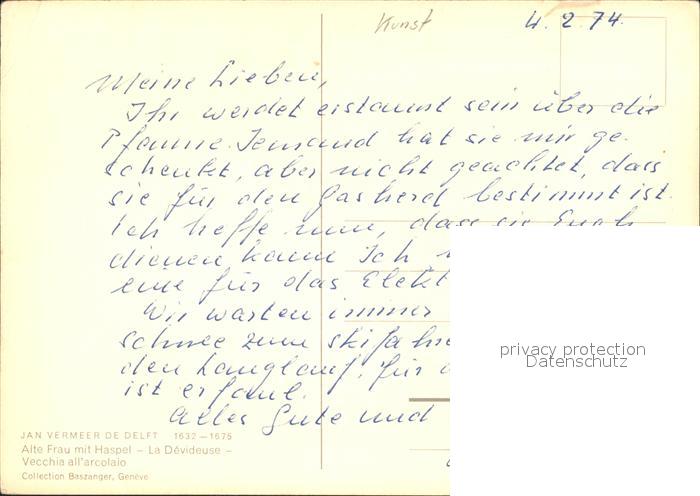 Kunst
4. 2. 74.
Meine Lieben,
Ihr werdet erstaunt sein über die
Pfanne. Jemand hat sie mir ge-
schenkt, aber nicht geachtet, dass
sie für den Gasherd bestimmt ist.
Ich hoffe nun, dass sie Euch
dienen kann. Ich
eine für das Elekt
Wir warten immer
schnee zum skifahre
den Langlauf, für
ist er faul.
Alles Gute und
privacy protection
Datenschutz
JAN VERMEER DE DELFT 1632—1675
Alte Frau mit Haspel – La Dévideuse –
Vecchia all'arcolaio
Collection Baszanger, Genève